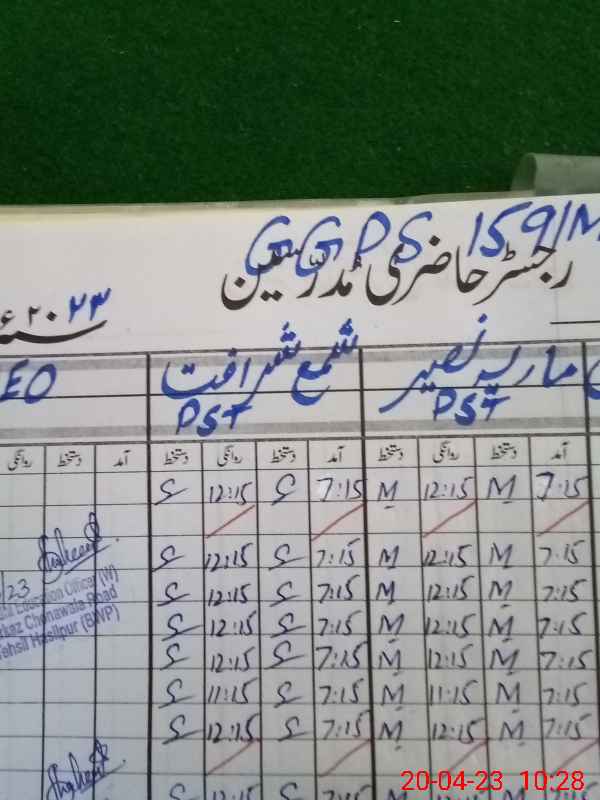 GGPS 159/M
رجسٹر حاضری مُدرّسین
۲۰۲۳ء
ماریہ نصیر شمع شرافت EO
PST PST
آمد دستخط روانگی دستخط آمد دستخط روانگی دستخط آمد دستخط روانگی
7:15 M 12:15 M 7:15 S 12:15 S
7:15 M 12:15 M 7:15 S 12:15 S
7:15 M 12:15 M 7:15 S 12:15 S
7:15 M 12:15 M 7:15 S 12:15 S
7:15 M 12:15 M 7:15 S 12:15 S
7:15 M 11:15 M 7:15 S 11:15 S
7:15 M 12:15 M 7:15 S 12:15 S
/23
Education Officer (W)
Markaz Chonawala Road
Tehsil Hasilpur (BWP)
20-04-23 10:28